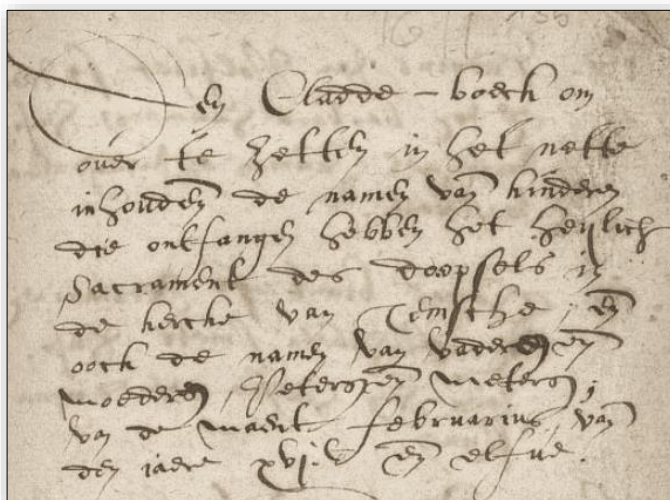 1611 135
Een Cladde-boeck om
over te zetten in het nette
inhouden̄ de namen van̄ kinderen
die ontfangen hebben het heylich
Sacrament des doopsels in
de kercke van Temsche, en̄
oock de namen van vaderen en̄
moeders, Peters en̄ meters;
van de maent februarius, van̄
den jaere xvjC en̄ elfve.